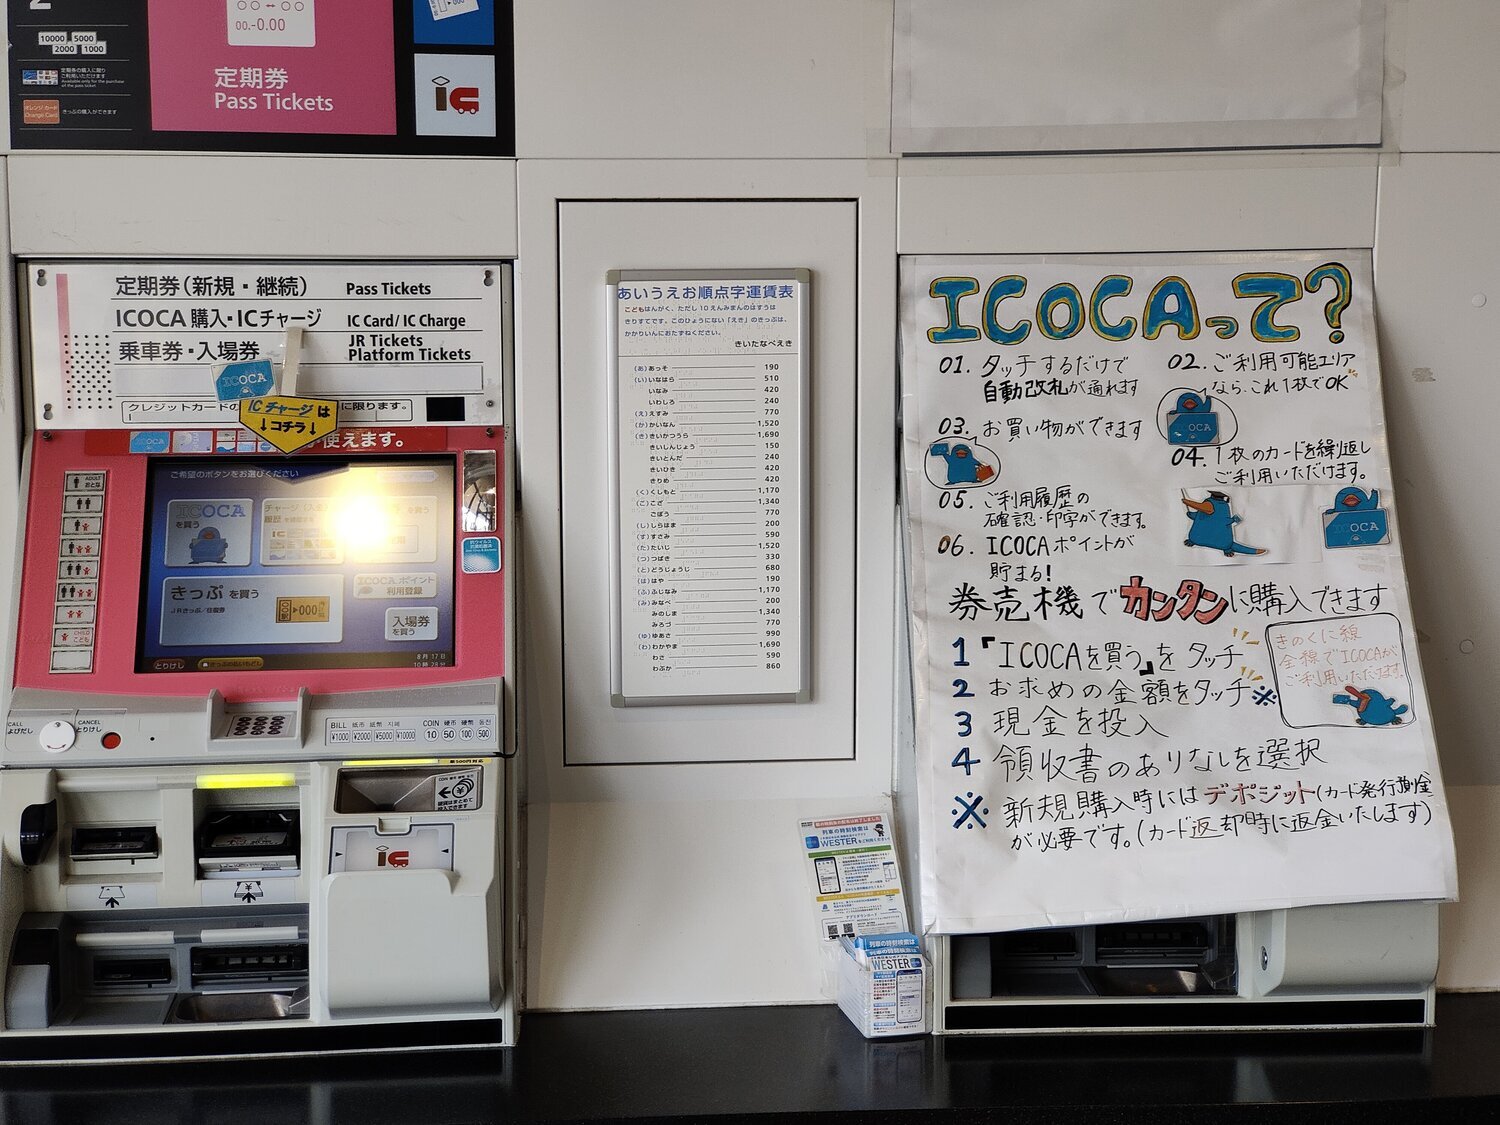 2
10000 5000
2000 1000
定期券の購入に限り
ご利用いただけます
Available only for the purchase
of the pass ticket
オレンジカード
Orange Card
きっぷの購入ができます
○○↔○○
00.-0.00
定期券
Pass Tickets
定期券(新規・継続) Pass Tickets
ICOCA購入・ICチャージ IC Card/ IC Charge
乗車券・入場券 JR Tickets
Platform Tickets
ICOCA
クレジットカードの
に限ります。
ICチャージは
↓コチラ↓
使えます。
ADULT
おとな
CHILD
こども
ご希望のボタンをお選びください
ICOCA
を買う
チャージ
きっぷ を買う
000
ICOCAポイント
利用登録
入場券
を買う
とりけし
きっぷの払いもどし
8月17日
10時28分
CALL
よびだし
CANCEL
とりけし
BILL 紙币 紙幣 지폐
¥1000 ¥2000 ¥5000 ¥10000
COIN 硬币 硬幣 동전
10 50 100 500
新500円対応
あいうえお順点字運賃表
こどもはんがく、ただし10えんみまんのはすうは
きりすてです。このひょうにない「えき」のきっぷは、
かかりいんにおたずねください。
きいたなべえき
(あ)あっそ 190
(い)いなはら 510
いなみ 420
いわしろ 240
(え)えすみ 770
(か)かいなん 1,520
(き)きいかつうら 1,690
きいしんじょう 150
きいとんだ 240
きいひき 420
きりめ 420
(く)くしもと 1,170
(こ)こざ 1,340
ごぼう 770
(し)しらはま 200
(す)すさみ 590
(た)たいじ 1,520
(つ)つばき 330
(と)どうじょうじ 680
(は)はや 190
(ふ)ふじなみ 1,170
(み)みなべ 200
みのしま 1,340
みろづ 770
(ゆ)ゆあさ 990
(わ)わかやま 1,690
わさ 590
わぶか 860
列車の時刻検索は
WESTER
列車の時刻検索は
WESTER
ICOCAって?
01. タッチするだけで
自動改札が通れます
02. ご利用可能エリア
なら、これ1枚でOK
03. お買い物ができます
ICOCA
04. 1枚のカードを繰り返し
ご利用いただけます。
05. ご利用履歴の
確認・印字ができます。
ICOCA
06. ICOCAポイントが
貯まる!
券売機でカンタンに購入できます
1 『ICOCAを買う』をタッチ
2 お求めの金額をタッチ※
3 現金を投入
4 領収書のありなしを選択
きのくに線
全線でICOCAが
ご利用いただけます。
※ 新規購入時にはデポジット(カード発行預り金)
が必要です。(カード返却時に返金いたします)